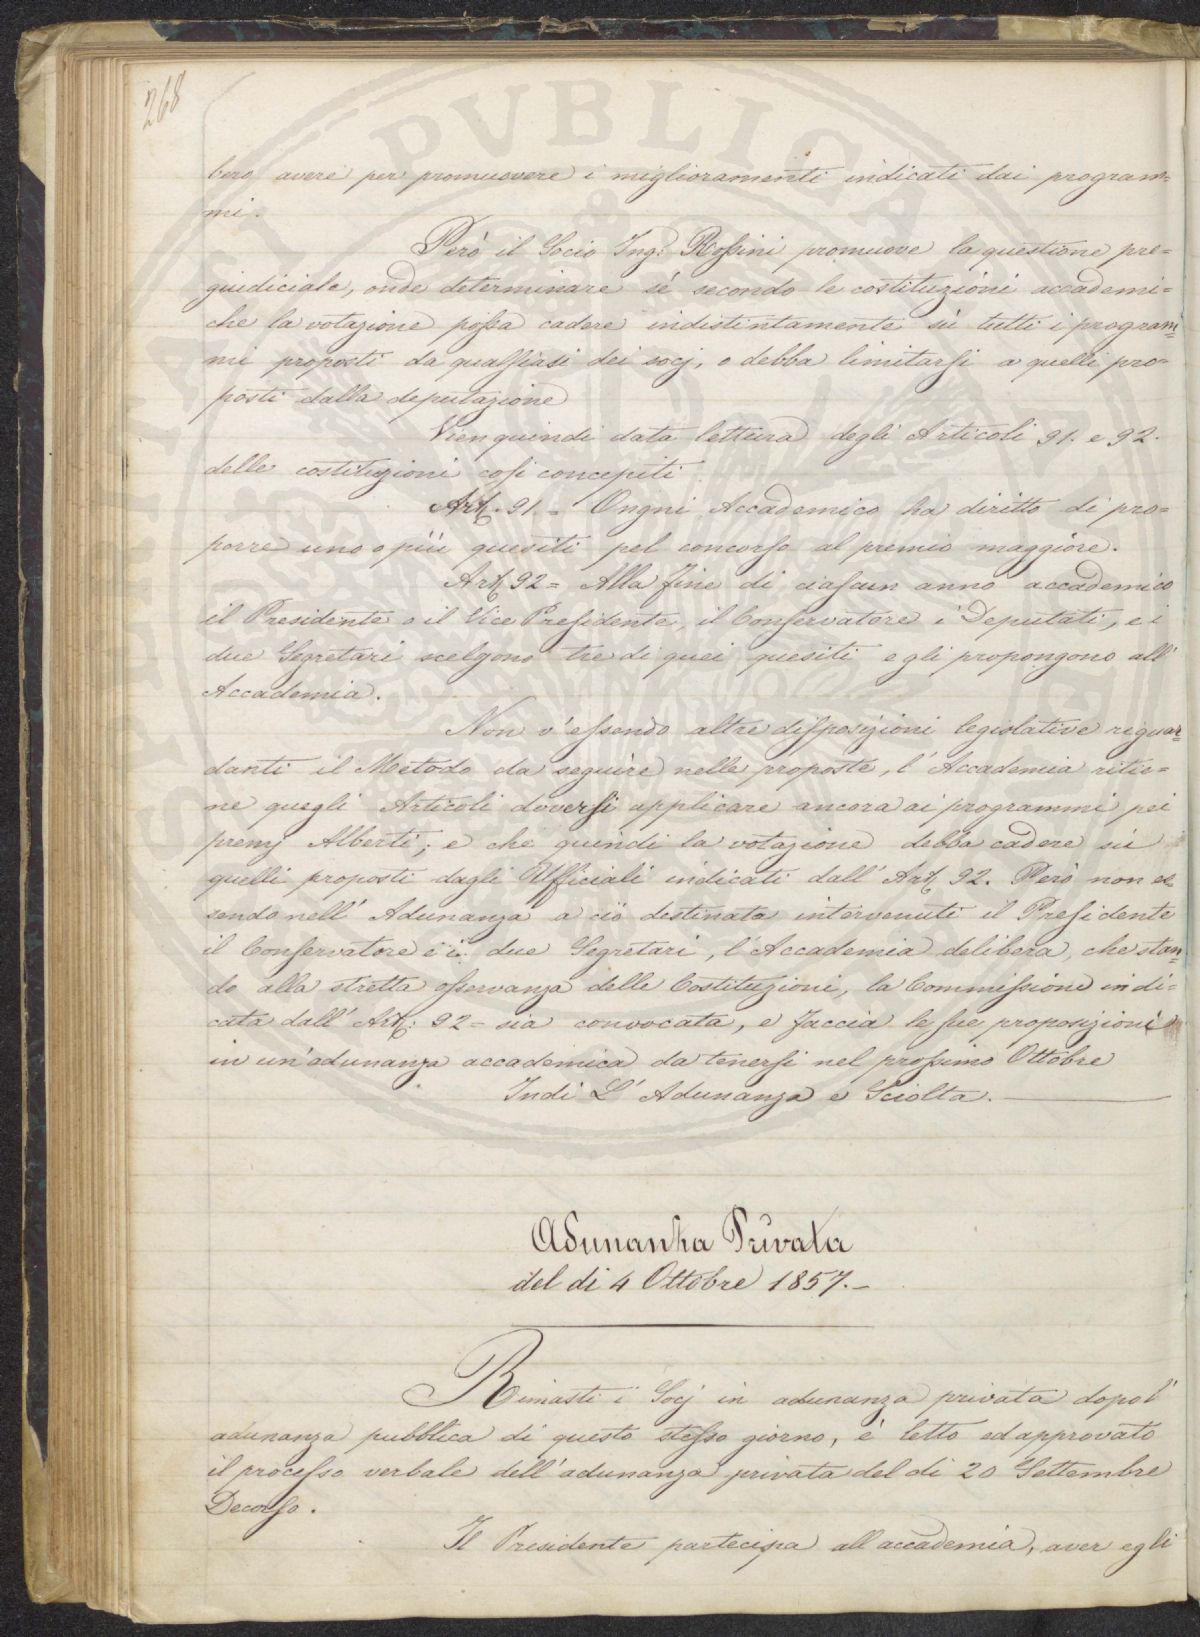 268
bero avere per promuovere i miglioramenti indicati dai program=
mi.
Però il Socio Ing: Rossini promuove la questione pre=
giudiciale, onde determinare sé secondo le costituzioni accademi=
che la votazione possa cadere indistintamente sù tutti i program=
mi proposti da qualsiasi dei socj, o debba limitarsi a quelli pro=
posti dalla deputazione
Vien quindi data lettura degli Articoli 91. e 92.
delle costituzioni così concepiti
Art. 91. = Ongni Accademico ha diritto di pro=
porre uno o più quesiti pel concorso al premio maggiore.
Art 92 = Alla fine di ciascun anno accademico
il Presidente o il Vice Presidente, il Conservatore i Deputati, e i
due Segretari scelgono tre di quei quesiti e gli propongono all'
Accademia.
Non v'essendo altre disposizioni legislative riguar=
danti il Metodo da seguire nelle proposte, l'Accademia ritie=
ne quegli Articoli doversi applicare ancora ai programmi pei
premj Alberti; e che quindi la votazione debba cadere sù
quelli proposti dagli Ufficiali indicati dall'Art 92. Però non es=
sendo nell'Adunanza a ciò destinata intervenuti il Presidente
il Conservatore e i due Segretari, l'Accademia delibera, che stan=
do alla stretta osservanza delle Costituzioni, la Commissione indi=
cata dall'Art: 92 = sia convocata, e faccia le sue proposizioni
in un'adunanza accademica da tenersi nel prossimo Ottobre
Indi L'Adunanza e Sciolta.
Adunanza Privata
del di 4 Ottobre 1857.-
Rimasti i Socj in adunanza privata dopo l'
adunanza pubblica di questo stesso giorno, è letto ed approvato
il processo verbale dell'adunanza privata del di 20 Settembre
Decorso.
Il Presidente partecipa all accademia, aver egli
PVBLICA